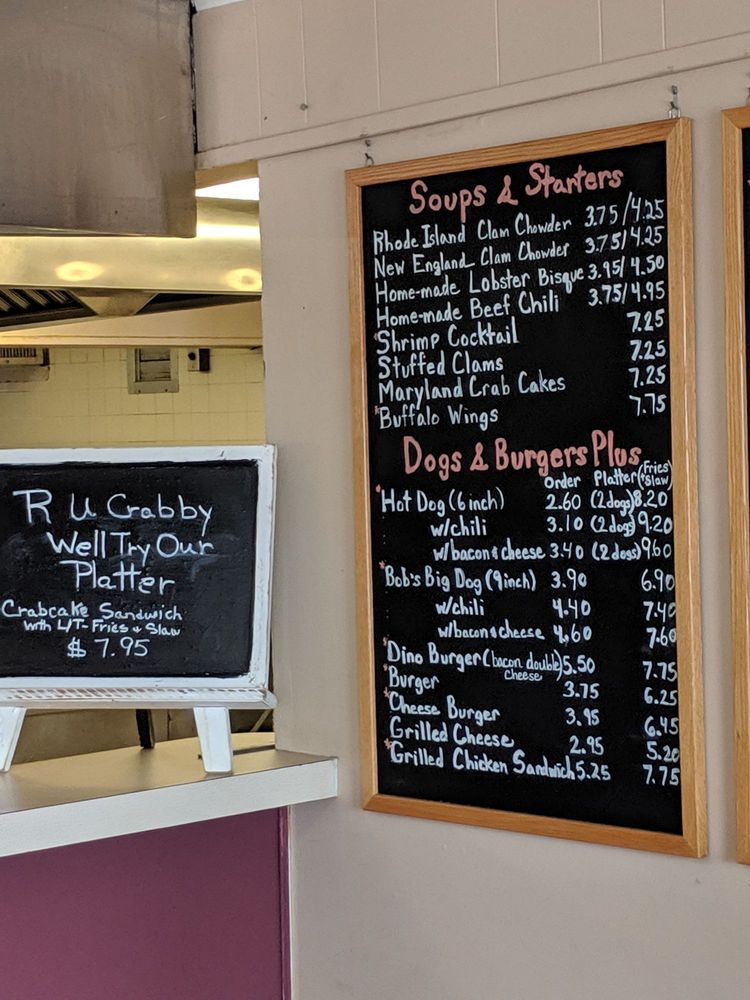 R U Crabby
Well Try Our
Platter
Crabcake Sandwich
with L/T-Fries & Slaw
$ 7.95
Soups & Starters
Rhode Island Clam Chowder 3.75/4.25
New England Clam Chowder 3.75/4.25
Home-made Lobster Bisque 3.95/4.50
Home-made Beef Chili 3.75/4.95
*Shrimp Cocktail 7.25
Stuffed Clams 7.25
Maryland Crab Cakes 7.25
*Buffalo Wings 7.75
Dogs & Burgers Plus
Order Platter (Fries + Slaw)
*Hot Dog (6 inch) 2.60 (2 dogs) 8.20
w/chili 3.10 (2 dogs) 9.20
w/bacon & cheese 3.40 (2 dogs) 9.60
*Bob's Big Dog (9 inch) 3.90 6.90
w/chili 4.40 7.40
w/bacon & cheese 4.60 7.60
*Dino Burger (bacon double cheese) 5.50 7.75
*Burger 3.75 6.25
*Cheese Burger 3.95 6.45
Grilled Cheese 2.95 5.20
*Grilled Chicken Sandwich 5.25 7.75